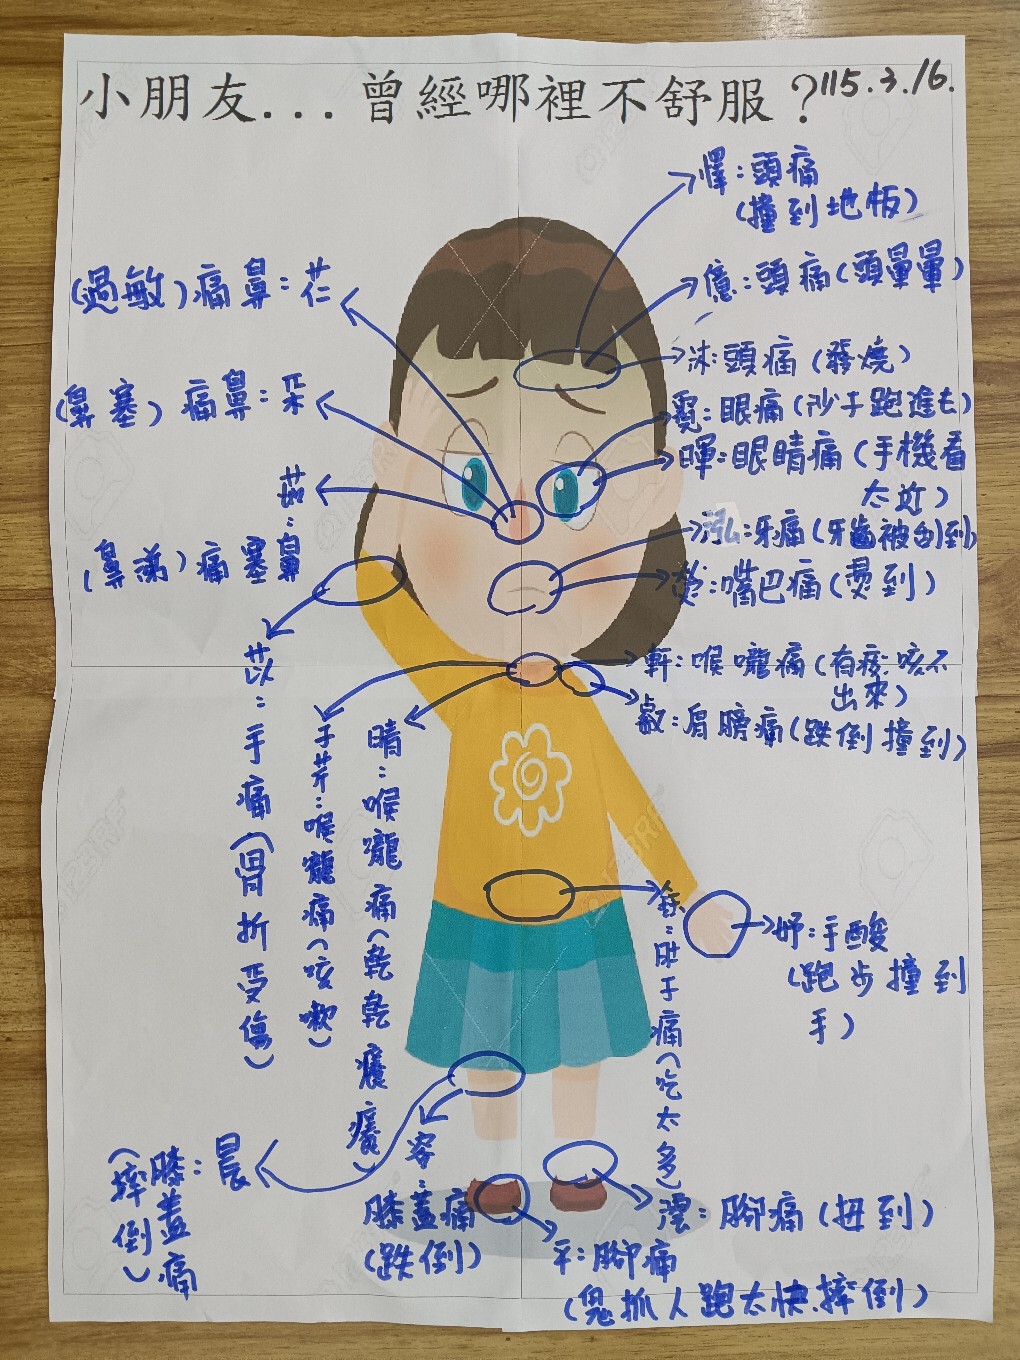 小朋友...曾經哪裡不舒服？
115.3.16.
懌:頭痛
(撞到地板)
億:頭痛(頭暈暈)
沐:頭痛(發燒)
霓:眼痛(沙子跑進去)
暉:眼睛痛(手機看
太近)
泓:牙痛(牙齒被刮到)
:嘴巴痛(燙到)
軒:喉嚨痛(有痰咳不
出來)
叡:肩膀痛(跌倒撞到)
芢:鼻痛(過敏)
朵:鼻痛(鼻塞)
茹:鼻塞痛(鼻涕)
苡:手痛(骨折受傷)
子芹:喉嚨痛(咳嗽)
晴:喉嚨痛(乾乾癢癢)
:肚子痛(吃太多)
妤:手酸
(跑步撞到
手)
晨:膝蓋痛
(摔倒)
容:
膝蓋痛
(跌倒)
澐:腳痛(扭到)
平:腳痛
(鬼抓人跑太快.摔倒)